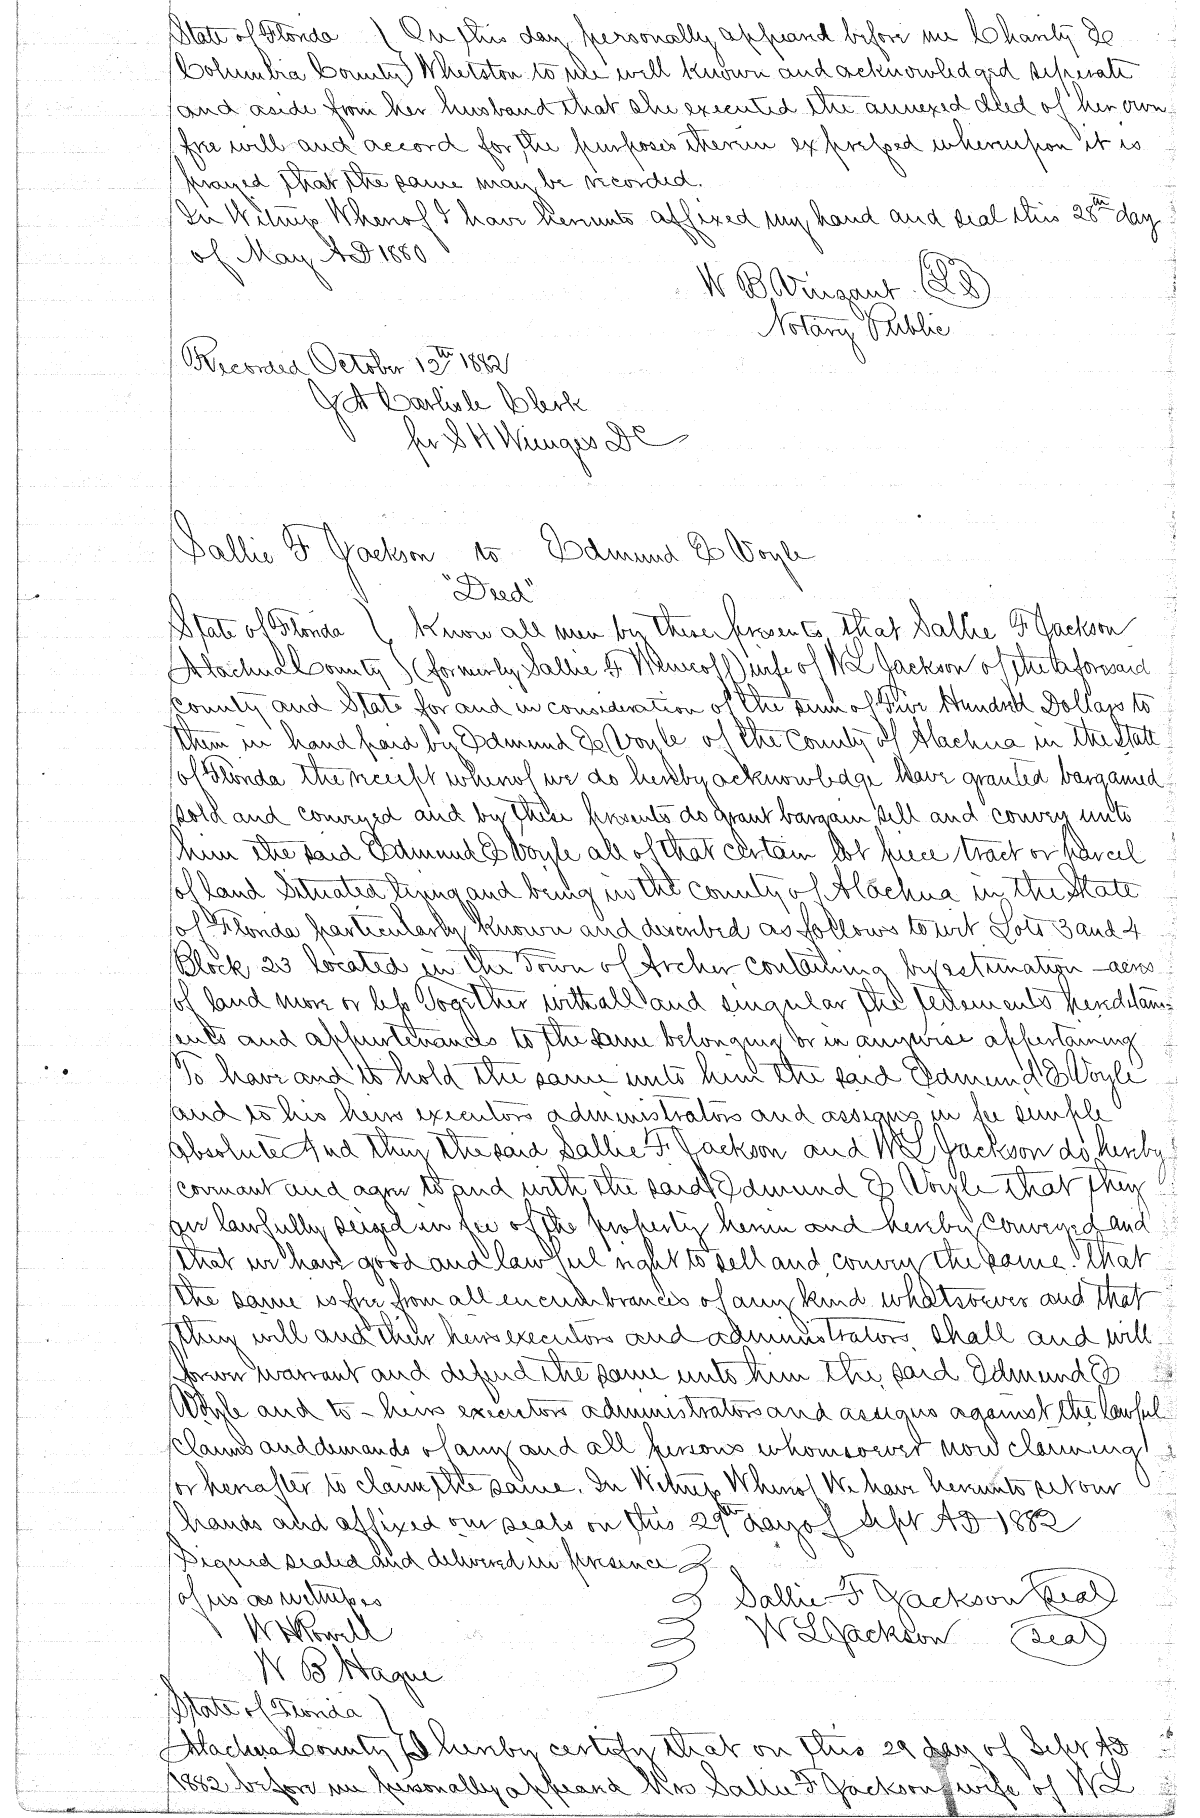 State of Florida } On this day personally appeard before me Charity E
Columbia County } Whetston to me well known and acknowledged seperate
and aside from her husband that she executed the annexed deed of her own
free will and accord for the purposes therein expressed whereupon it is
prayed that the same may be recorded.
In Witness Whereof I have hereunto affixed my hand and seal this 28th day
of May AD 1880
W B Vinzant (LS)
Notary Public
Recorded October 12th 1882
J A Carlisle Clerk
per S H Wienges DC
Sallie F Jackson to Edmund E Voyle
"Deed"
State of Florida } Know all men by these presents that Sallie F Jackson
Alachua County } (formerly Sallie F ) wife of W L Jackson of the aforesaid
County and State for and in consideration of the sum of Five Hundred Dollars to
them in hand paid by Edmund E Voyle of the County of Alachua in the State
of Florida the receipt whereof we do hereby acknowledge have granted bargained
sold and conveyed and by these presents do grant bargain sell and convey unto
him the said Edmund E Voyle all of that certain lot piece tract or parcel
of land Situated lying and being in the County of Alachua in the State
of Florida particularly known and described as follows to wit Lots 3 and 4
Block 23 located in the Town of Archer containing by estimation - acres
of land more or less Together with all and singular the tenements hereditam-
ents and appurtenances to the same belonging or in anywise appertaining
To have and to hold the same unto him the said Edmund E Voyle
and to his heirs executors administrators and assigns in fee simple
absolute And they the said Sallie F Jackson and W L Jackson do hereby
covenant and agree to and with the said Edmund E Voyle that they
are lawfully seized in fee of the property herein and hereby conveyed and
that we have good and lawful right to sell and convey the same. that
the same is free from all encumbrances of any kind whatsoever and that
they will and their heirs executors and administrators shall and will
forever warrant and defend the same unto him the said Edmund E
Voyle and to - heirs executors administrators and assigns against the lawful
claims and demands of any and all persons whomsoever now claiming
or hereafter to claim the same. In Witness Whereof We have hereunto set our
hands and affixed our seals on this 29th day of Sept AD 1882
Signed sealed and delivered in presence
of us as witnesses
Sallie F Jackson (Seal)
W H Powell
W L Jackson (Seal)
W B Hague
State of Florida }
Alachua County } I hereby certify that on this 29 day of Sept AD
1882 before me personally appeard Mrs Sallie F Jackson wife of W L